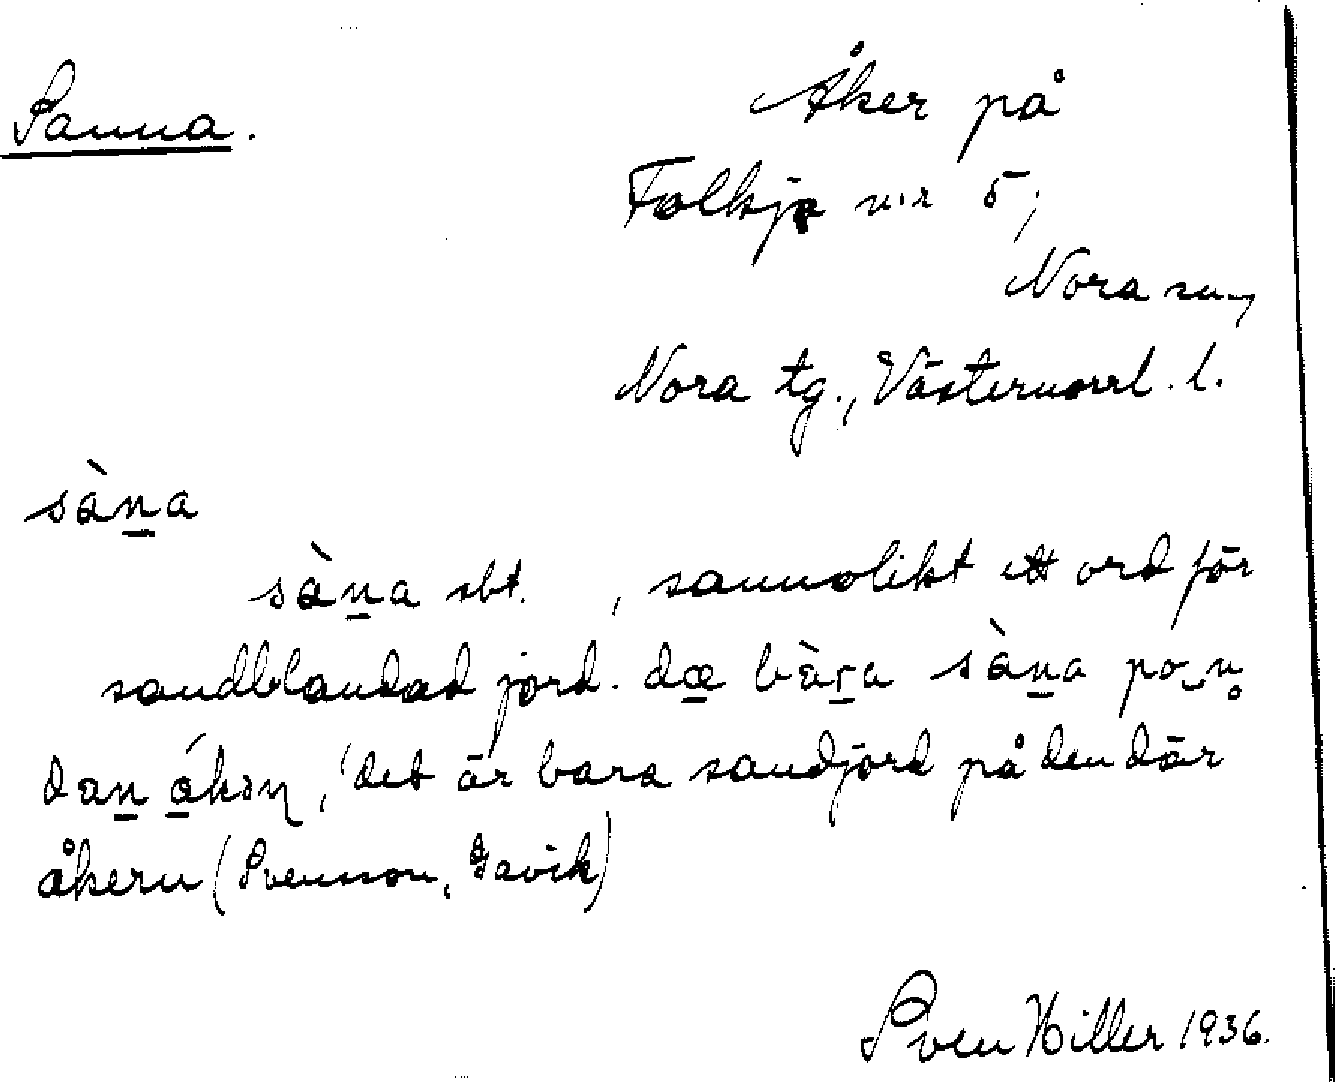 Sanna.
Åker på
Folkja n:r 5,
Nora sn,
Nora tg., Västernorrl. l.
sàn̲a
sàn̲a sbt. , sannolikt ett ord för
sandblandad jord. dæ̲ bàr̲a sàn̲a po‿n̥
dan̲ á̲kəɳ, 'det är bara sandjord på den där
åkern (Svensson, Gavik)
Sven Hiller 1936.